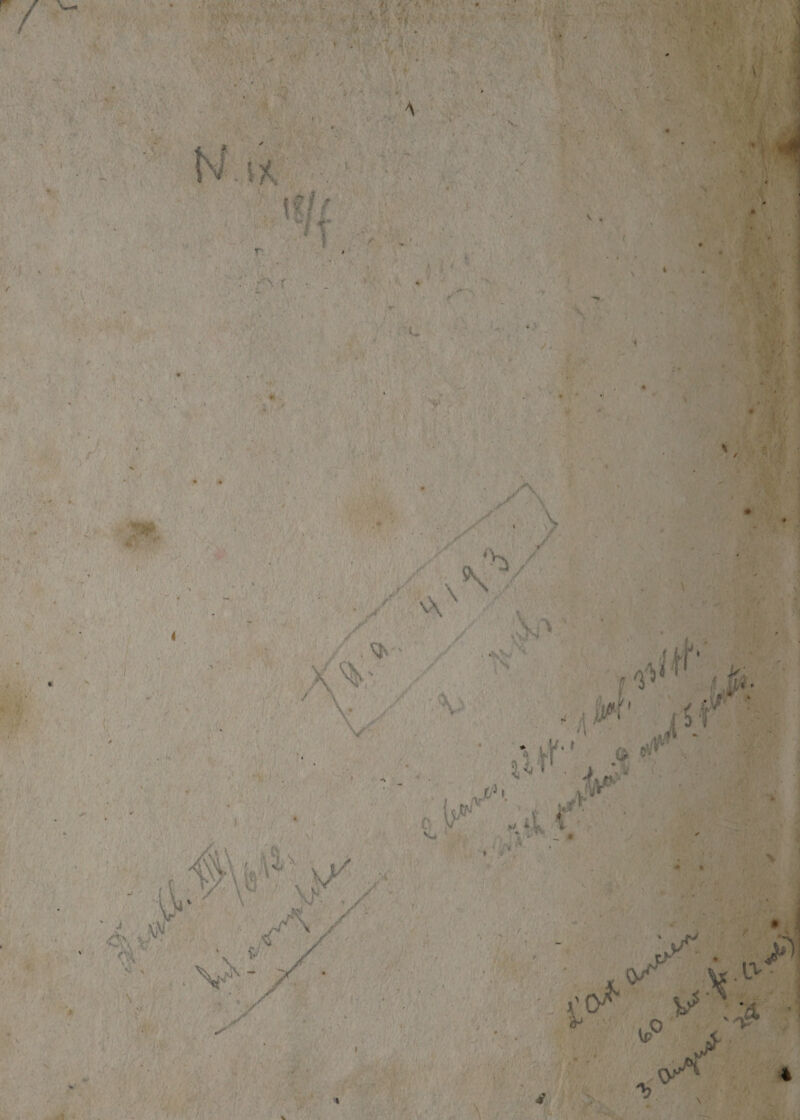 N. ix
18/f
a.a. 4193
2 vols
2 leaves, 22 pp., 1 leaf, 336 pp.
With portrait and 5 plates.
XIV/612,
but complete
L'Art Ancien
60 Sw. fr. (2 vols)
3 August '28